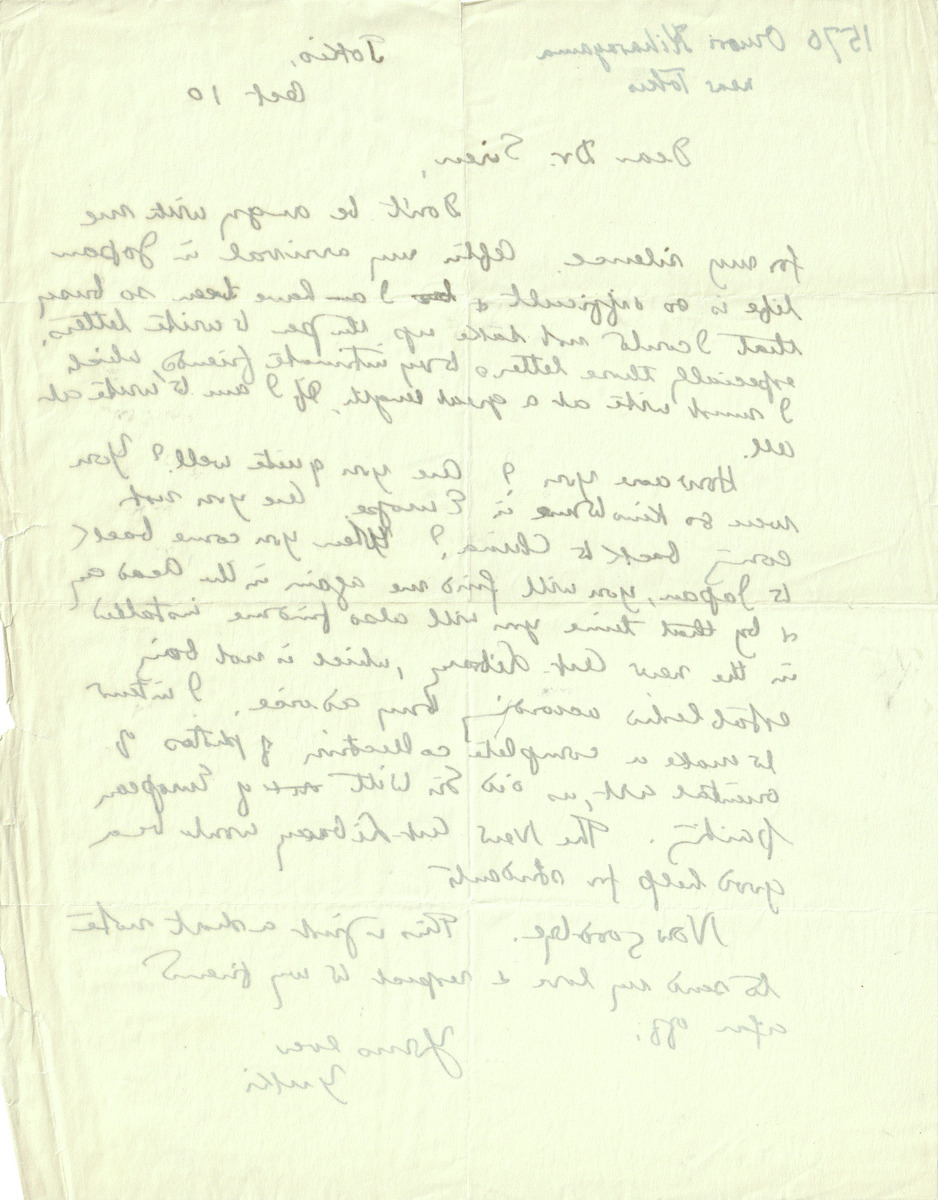 1576 Omori Kiharayama
near Tokio
Tokio,
Oct 10
Dear Dr. Siren,
Don't be angry with me
for my silence. After my arrival in Japan
life is so difficult & I have been so busy
that I could not take up the pen to write letters,
especially those letters to my intimate friends, which
I must write at a great length, if I am to write at
all.
How are you? Are you quite well? You
were so kind to me in Europe. Are you not
coming back to China? When you come back
to Japan, you will find me again in the
& by that time you will also find me installed
in the new Art-Library, which is not being
established according to my advice. I intend
to make a complete collection of photos of
oriental art, as did Sir Witt of European
painting. The New Art-Library would be a
good help for students
Now goodbye. This is just a short note
to send my love & respect to my friend
afar off.
Yours ever
Yukki